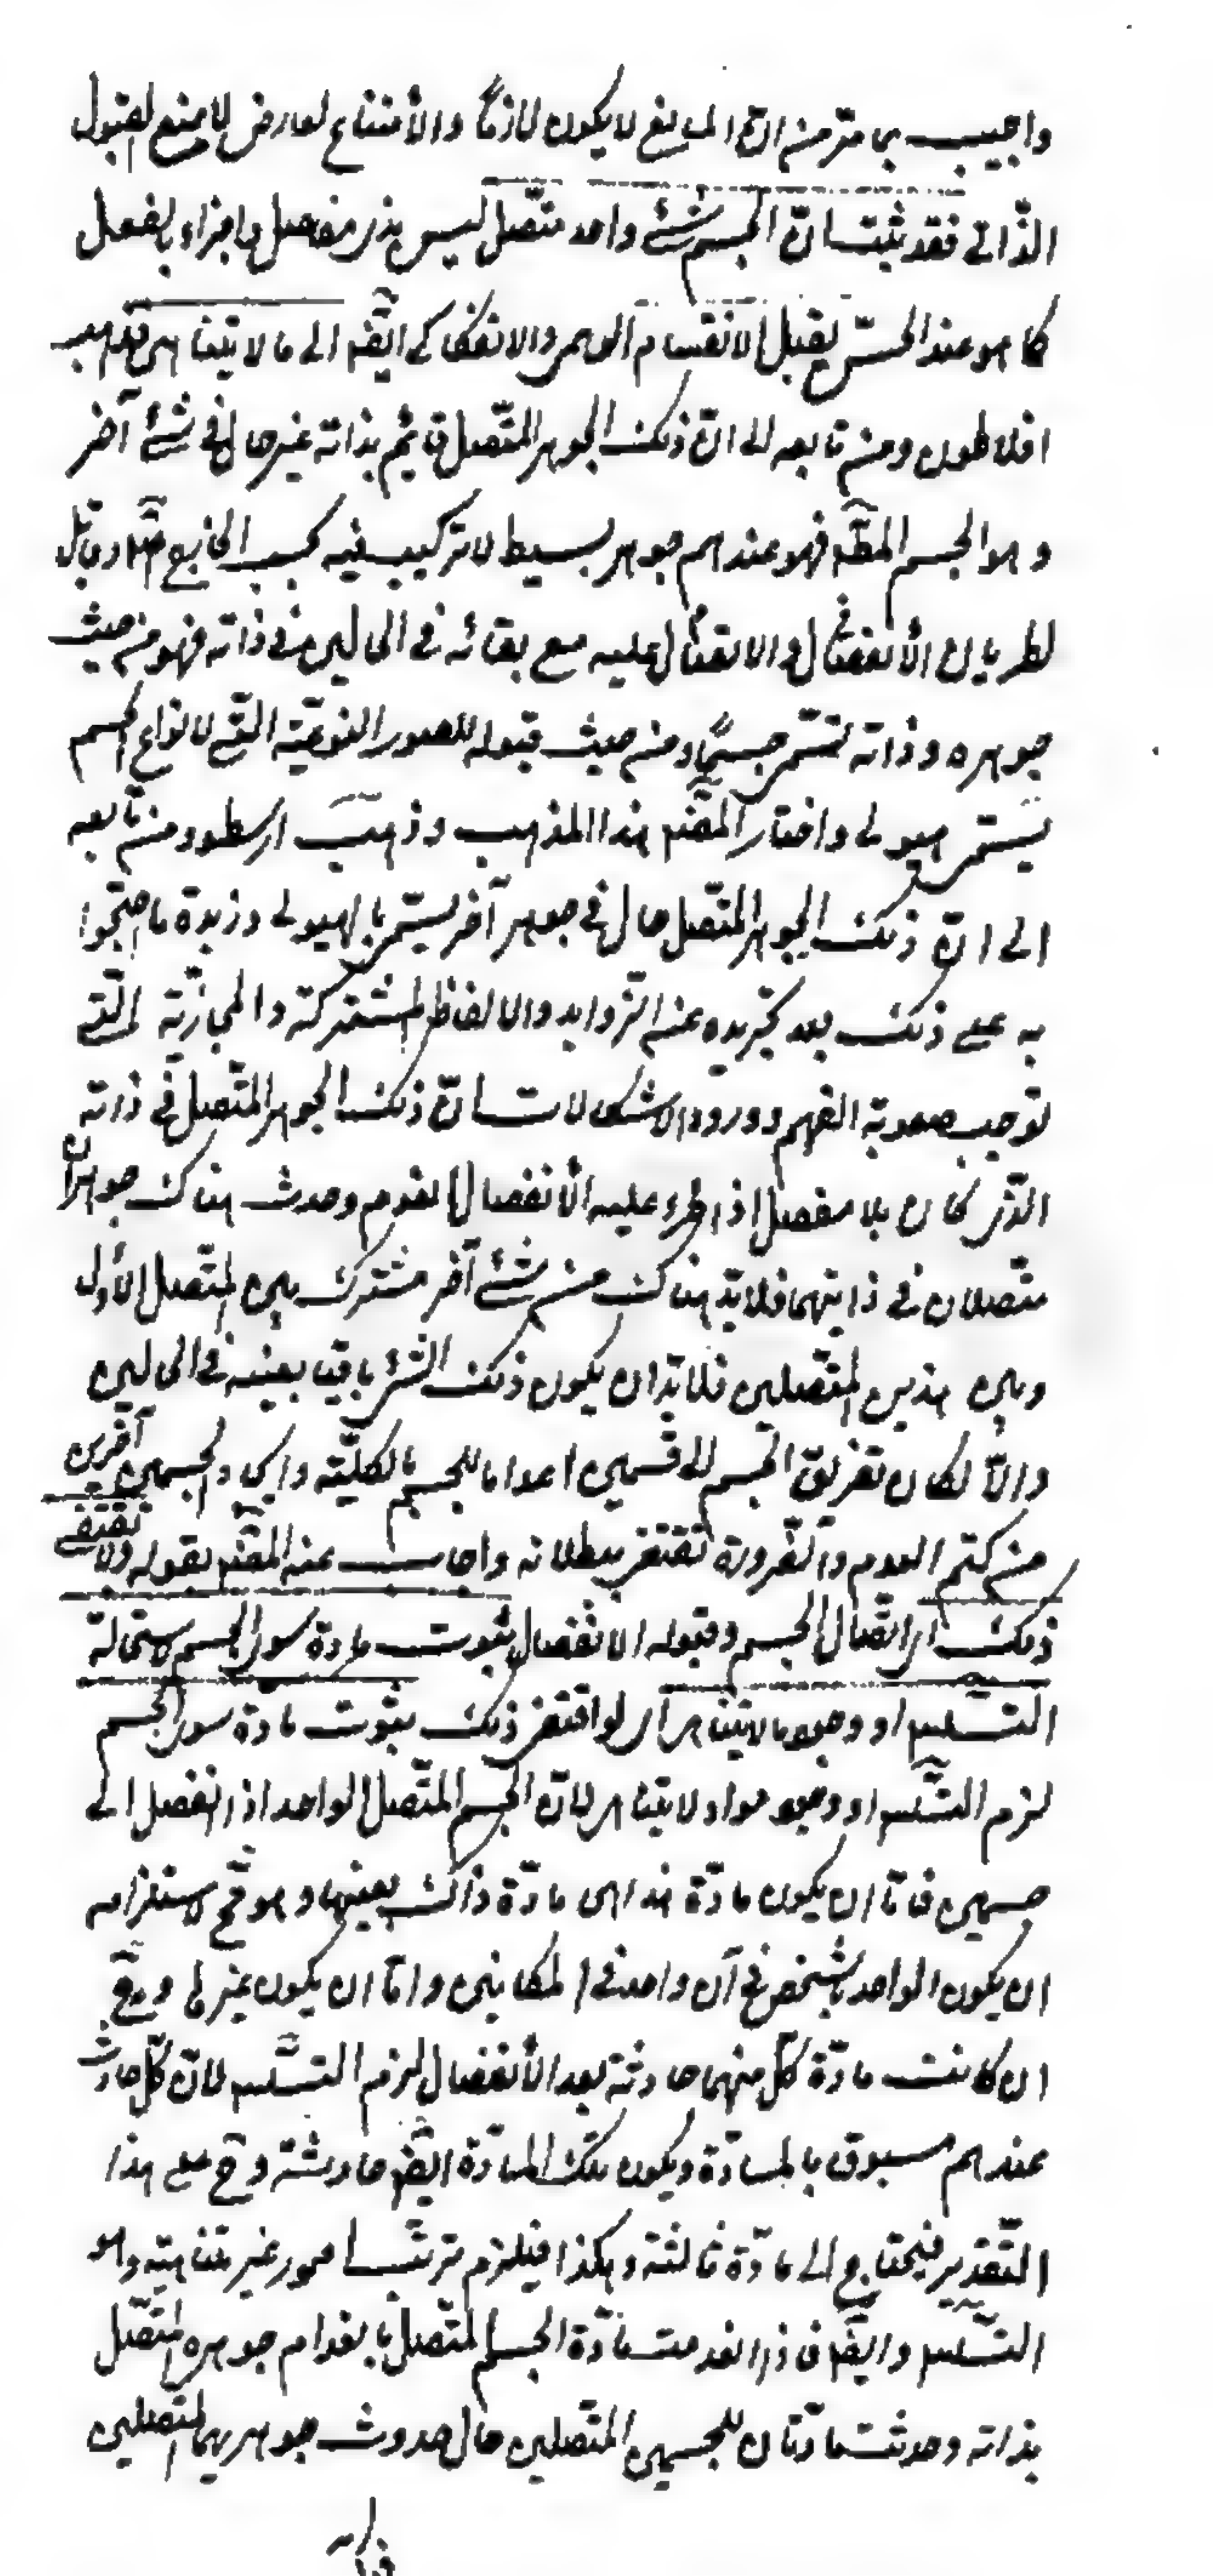 واجيب بما مرّ من انّ المانع لا يكون لازمًا والأمتناع لعارض لا يمنع القبول
الذّاتى فقد ثبت انّ الجسم شئ واحد متّصل ليس بذى مفصل واجزاء بالفعل
كما هو عند الحسّ يقبل الانقسام الوهمى والانفكاكى ايضہ الى ما لا يتناهى فذهب
افلاطون ومن تابعه الى انّ ذلك الجوهر المتّصل قائم بذاته غير حال فى شئ آخر
وهو الجسم المطہ فهو عندهم جوهر بسيط لا تركيب فيه بحسب الخارج اصلا وقابل
لطريان الأنفصال والاتصال عليه مع بقائه فى الحالين فى ذاته فهو من حيث
جوهره وذاته تسمّى جسمًا ومن حيث قبوله للصور النوعيّة الّتى لانواع الجسم
يسمّى هيولى واختار المصنہ هذا المذهب وذهب ارسطو ومن تابعه
الى انّ ذلك الجوهر المتّصل حال فى جوهر آخر يسمّى بالهيولى وزبدة ما احتجوا
به على ذلك بعد تجريده عن الزّوايد والالفاظ المشتركة والمجازيّة الّتى
توجب صعوبة الفهم وورود الاشكالات انّ ذلك الجوهر المتّصل فى ذاته
الّذى كان بلا مفصل اذا طرء عليه الأنفصال انعدم وحدث هناك جوهران
متّصلان فى ذاتهما فلابدّ هناك من شئ آخر مشترك بين المتّصل الأول
وبين هذين المتّصلين فلابدّ ان يكون ذلك الشئ باقيا بعينه فى الحالين
والّا لكان تفريق الجسم الى قسمين اعداما للجسم بالكليّة وايجاد الجسمين آخرين
من كتم العدم والضّرورة تقتضى ببطلانه واجاب عنه المصنہ بقوله ولا تقتضى
ذلك اى اتّصال الجسم وقبوله الانفصال ثبوت مادة سوى الجسم لاستحالة
التسلسہ او وجود ما لا يتناهى اى لو اقتضى ذلك ثبوت مادة سوى الجسم
لزم التسلسہ او وجود مواد لا يتناهى لانّ الجسم المتّصل الواحد اذا انفصل الى
جسمين فامّا ان يكون مادّة هذا هى مادّة ذاك بعينها وهو مح لاستلزامه
ان يكون الواحد بالشخص فى آن واحد فى المكانين وامّا ان يكون غيرها وح
ان كانت مادّة كلّ منهما حادثة بعد الأنفصال لزم التسلسہ لانّ كلّ حادث
عندهم مسبوق بالمادّة ويكون تلك المادّة ايضہ حادثة وح على هذا
التّقدير فيحتاج الى مادّة ثالثة وهكذا فيلزم ترتّب امور غير متناهية وهو
التسلسہ وايضہ فاذا انعدمت مادّة الجسم المتّصل بانعدام جوهره المتّصل
بذاته وحدثت مادّتان للجسمين المتّصلين حال حدوث جوهريهما المتصلين